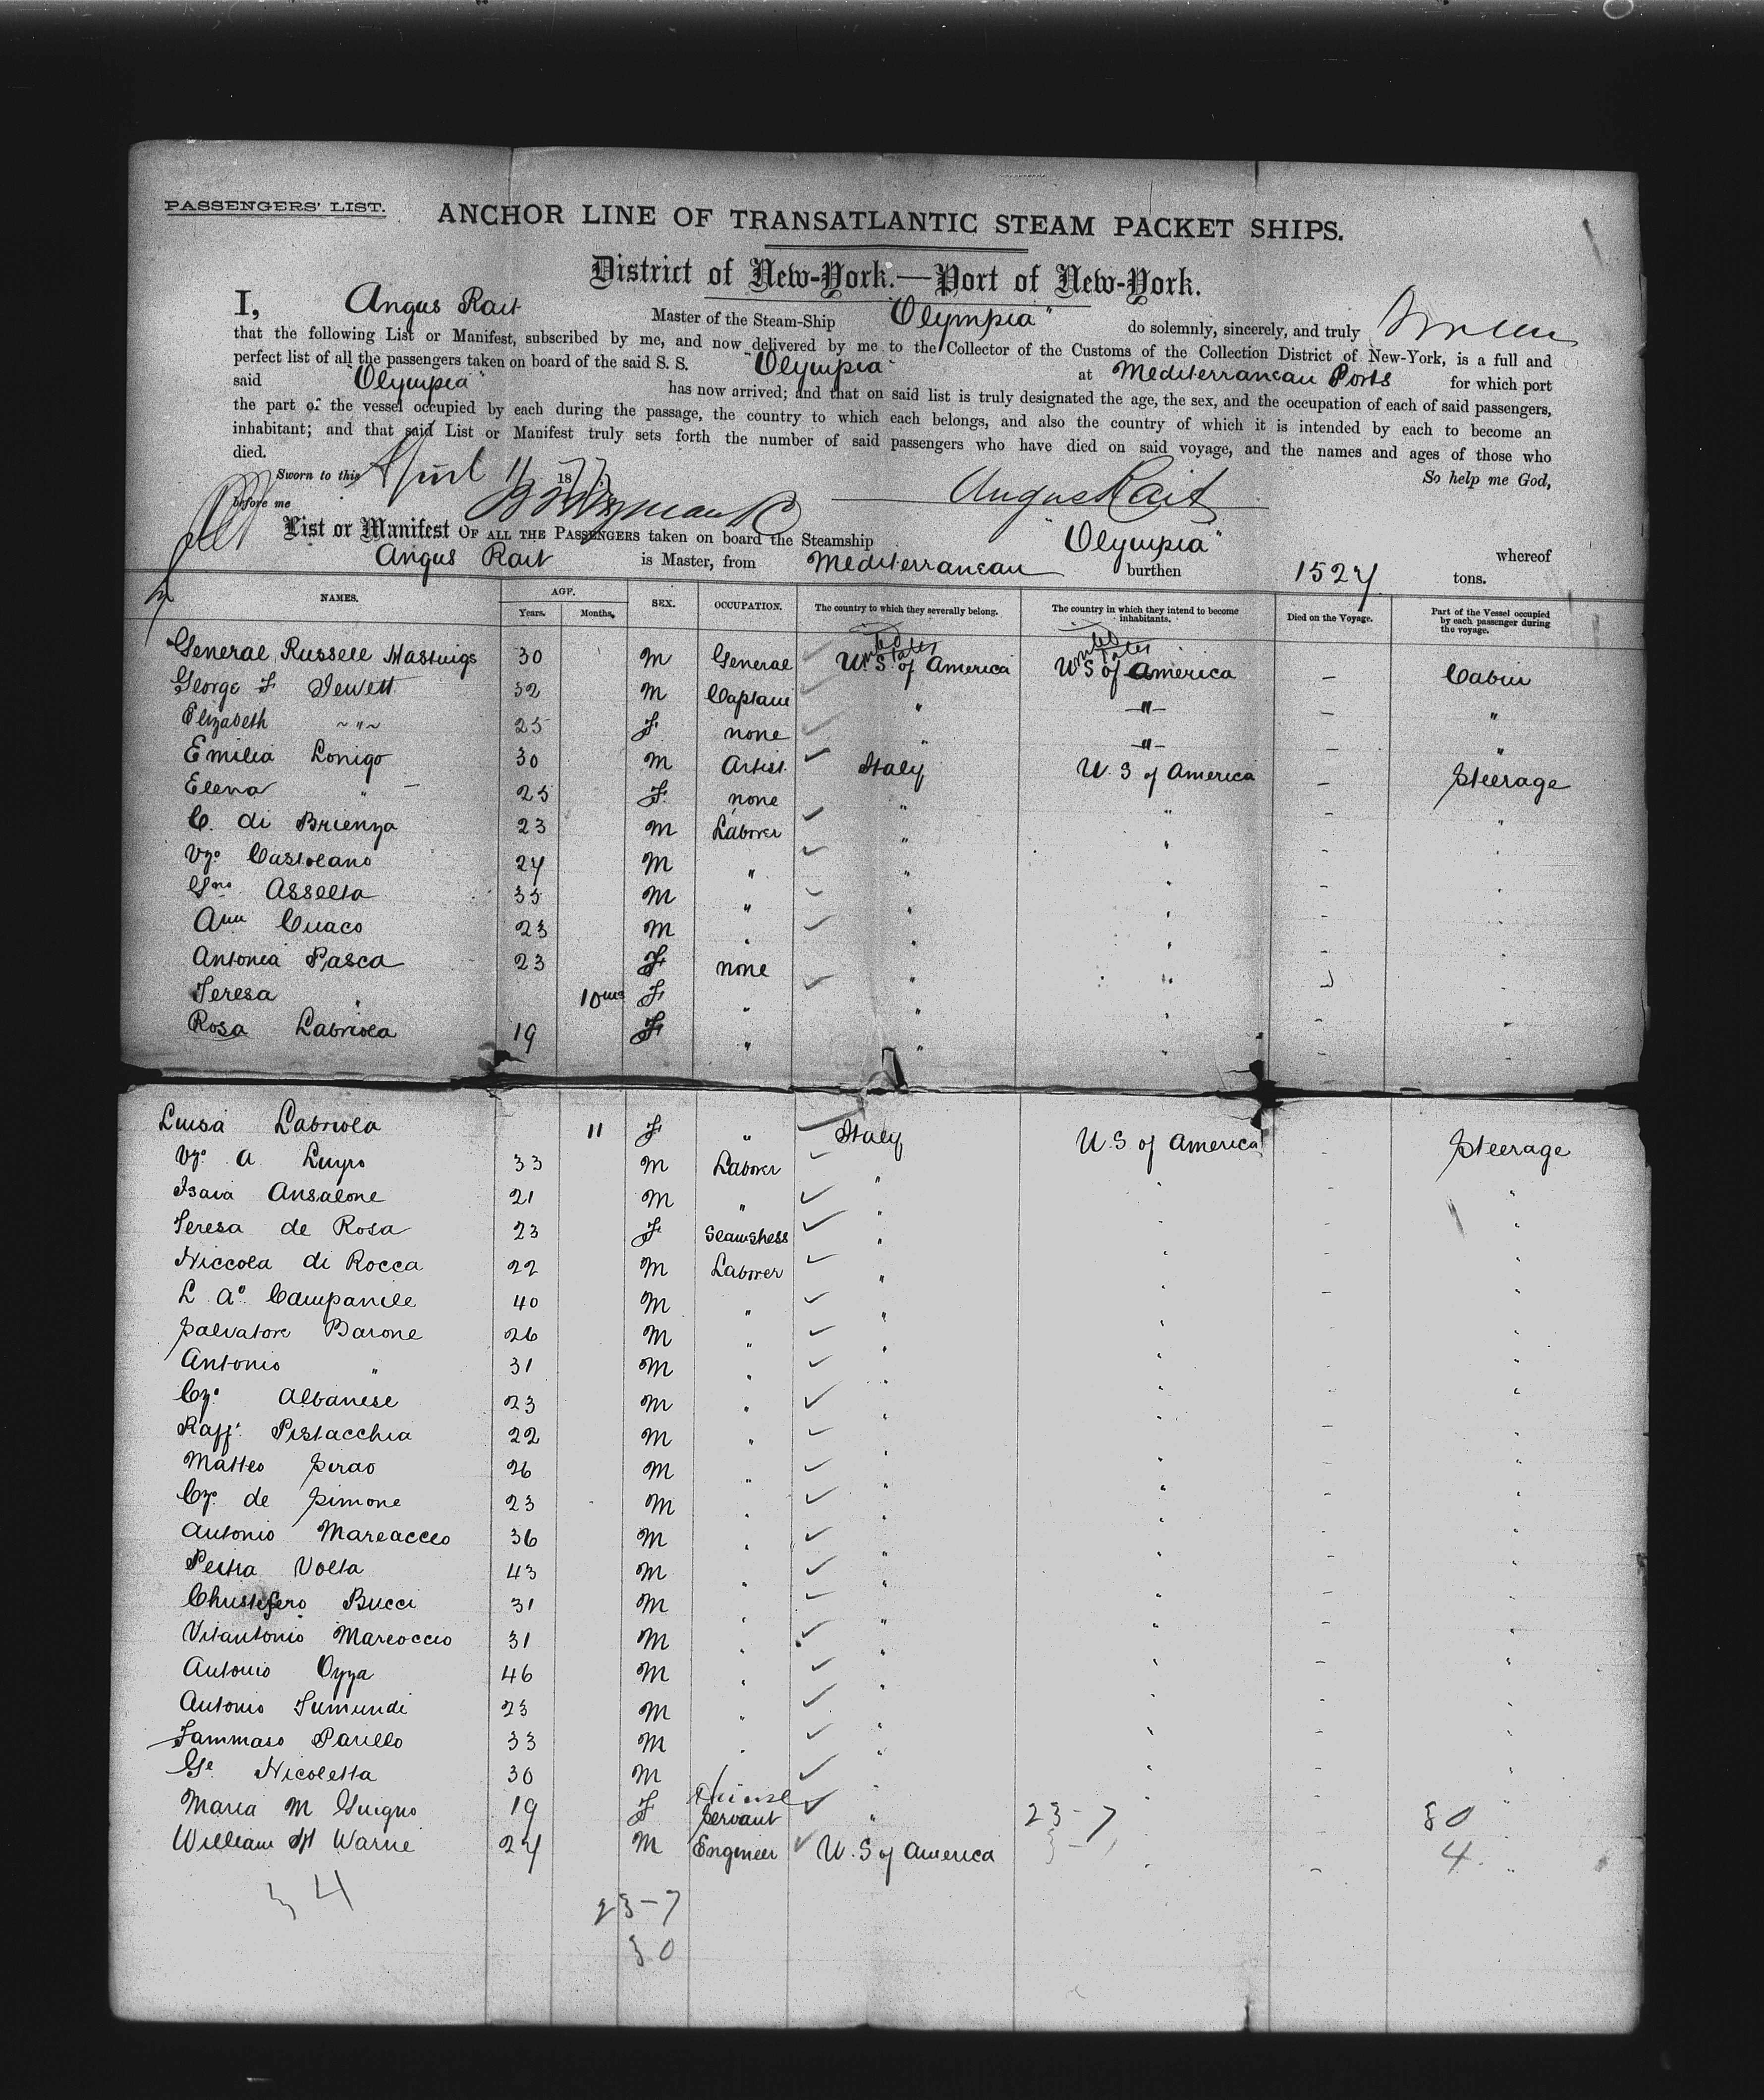 PASSENGERS' LIST.
ANCHOR LINE OF TRANSATLANTIC STEAM PACKET SHIPS.
District of New-York.—Port of New-York.
I, Angus Rait Master of the Steam-Ship "Olympia" do solemnly, sincerely, and truly
that the following List or Manifest, subscribed by me, and now delivered by me to the Collector of the Customs of the Collection District of New-York, is a full and
perfect list of all the passengers taken on board of the said S. S. "Olympia" at Mediterranean Ports for which port
said "Olympia" has now arrived; and that on said list is truly designated the age, the sex, and the occupation of each of said passengers,
the part of the vessel occupied by each during the passage, the country to which each belongs, and also the country of which it is intended by each to become an
inhabitant; and that said List or Manifest truly sets forth the number of said passengers who have died on said voyage, and the names and ages of those who
died.
So help me God,
Sworn to this April 11 1877
before me
Angus Rait
List or Manifest OF ALL THE PASSENGERS taken on board the Steamship "Olympia" whereof
Angus Rait is Master, from Mediterranean burthen 1527 tons.
NAMES. AGE. Years. Months. SEX. OCCUPATION. The country to which they severally belong. The country in which they intend to become inhabitants. Died on the Voyage. Part of the Vessel occupied by each passenger during the voyage.
General Russell Hastings 30 M General U.S. of America U S of America – Cabin
George F Jewett 32 M Captain " –"– – "
Elizabeth ~"~ 25 F. none " –"– – "
Emilia Lonigo 30 M Artist Italy U. S of America – Steerage
Elena " 25 F. none " " – "
C. di Brienza 23 M Laborer " " – "
Vzo Castolano 24 M " " " – "
Gno Asselta 35 M " " " – "
Ann Cuaco 23 M " " " – "
Antonia Pasca 23 F none " " "
Teresa " 10ms F " " " – "
Rosa Labriola 19 F " " " – "
Luisa Labriola 11 F " Italy U.S of America – Steerage
Vzo A Luyro 33 M Laborer " " – "
Isaia Ansalone 21 M " " " – "
Teresa de Rosa 23 F Seamstress " " – "
Niccola di Rocca 22 M Laborer " " – "
L Ao Campanile 40 M " " " – "
Salvatore Barone 26 M " " " – "
Antonio " 31 M " " " – "
Czo Albanese 23 M " " " – "
Raffe Pistacchia 22 M " " " – "
Matteo Sirao 26 M " " " – "
Czo de Simone 23 M " " " – "
Antonio Mareacceo 36 M " " " – "
Petra Volta 43 M " " " – "
Christofero Bucci 31 M " " " – "
Vitantonio Mareoccio 31 M " " " – "
Antonio Ozza 46 M " " " – "
Antonio Tumundi 23 M " " " – "
Tammaso Parillo 33 M " " " – "
Ge Nicoletta 30 M " " – "
Maria M Guigno 19 F Servant " 23-7 80
William H Warne 24 M Engineer U.S of America " – 4. "
34
23-7
30